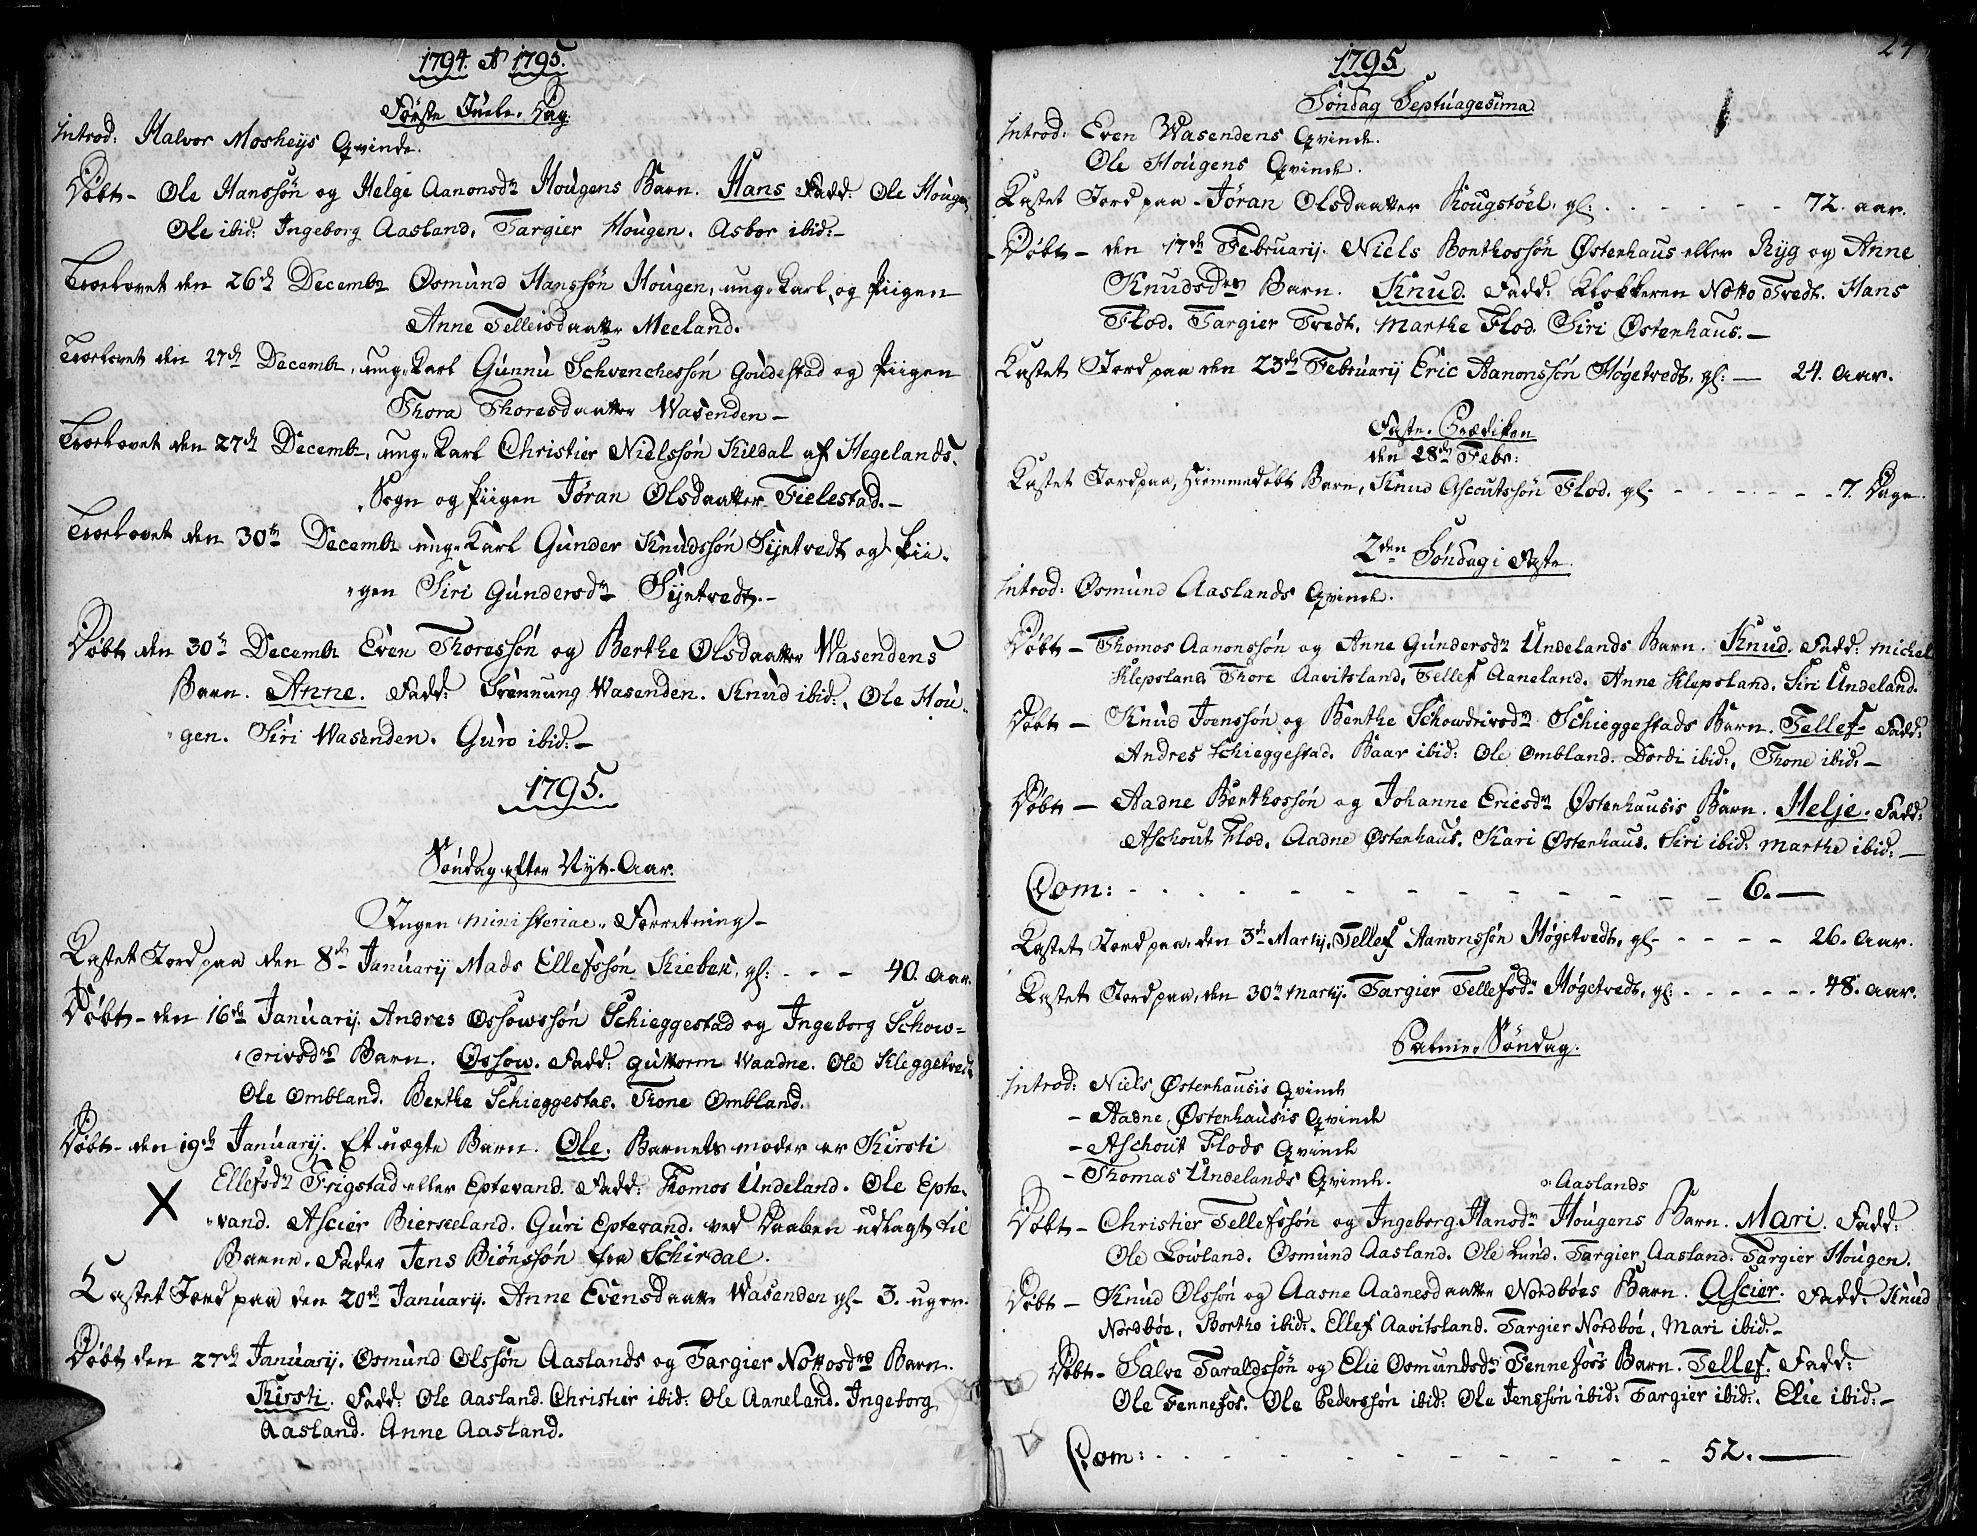 1794. et 1795.
Første Juele-Dag.
Introd: Halvor Mosheys Qvinde.
Døbt - Ole Hanssøn og Helge Aanonsdr Hougens Barn. Hans Fadd: Ole Hougen
Ole ibid: Ingeborg Aasland. Targier Hougen. Asbor ibid:-
Troelovet den 26de Decembr Osmund Hanssøn Hougen, ung-Karl, og Piigen
Anne Tellefsdaatter Meeland.
Troelovet den 27de Decembr, ung-Karl Gunnu Schvenchessøn Goudestad og Piigen
Thora Thoresdaatter Wasenden-
Troelovet den 27de Decembr, ung-Karl Christier Nielssøn Kildal af Hegelands-
Sogn og Piigen Jøran Olsdaatter Fielestad.-
Troelovet den 30te Decembr ung-Karl Gunder Knudssøn Synetvedt og Pii-
"gen Siri Gundersdr Synetvedt.-
Døbt den 30te Decembr Even Thoressøn og Berthe Olsdaatter Wasendens
Barn. Anne. Fadd: Wasenden. Knud ibid:. Ole Hou-
"gen. Siri Wasenden. Guro ibid:-
1795.
Søndag efter Nyt-Aar.
Ingen ministeriae-Forretning-
Kastet Jord paa den 8de Januarij Mads Ellefssøn Kieben, gl: - - - 40. aar.
Døbt - den 16de Januarij. Andres Ossowssøn Schieggestad og Ingeborg Schow-
"drivsdr Barn. Ossow. Fadd: Guttorm Waadne. Ole Kleggetvedt
Ole Ombland. Berthe Schieggestad. Thone Ombland.
Døbt - den 19de Januarij. Et uægte Barn. Ole. Barnets moder er Kirsti
Ellefsdr Frigstad eller Eptevand. Fadd: Thomos Undeland. Ole Epte-
"vand. Ascier Bierseland. Guri Eptevand. ved Daaben udlagt til
Barne-Fader Jens Biønssøn fra Schirdal.
Kastet Jord paa den 20de Januarij. Anne Evensdaatter Wasenden gl- 3. uger.
Døbt den 27de Januarij. Osmund Olssøn Aaslands og Targier Nottosdr Barn.
Kirsti. Fadd: Ole Aasland. Christier ibid: Ole Aaneland. Ingeborg
Aasland. Anne Aasland.
24
1795.
Søndag Septuagesima
Introd: Even Wasendens Qvinde.
Ole Hougens Qvinde.
Kastet Jord paa - Jøran Olsdaatter Rougstøel, gl: - - - - - 72. aar.
Døbt - den 17de Februarij. Niels Bonthossøn Østenhaus eller Ryg og Anne
Knudsdr Barn. Knud. Fadd: Klokkeren Notto Tvedt. Hans
Flod. Targier Tvedt. Marthe Flod. Siri Østenhaus.-
Kastet Jord paa den 23de Februarij Eric Aanonssøn Høgetvedt, gl: - 24. aar.
Faste-Prædiken
den 28de Febr:
Kastet Jord paa, hiemmedøbt Barn, Knud Ascoutssøn Flod. gl- - - - - - 7. Dage.
2den Søndag i Faste
Introd: Osmund Aaslands Qvinde.
Døbt - Thomos Aanonssøn og Anne Gundersdr Undelands Barn. Knud. Fadd: Michel
Klepsland. Thore Aavitsland. Tellef Aaneland. Anne Klepsland. Siri Undeland.
Døbt - Knud Joenssøn og Berthe Schowdrivsdr Schieggestads Barn. Tellef- Fadd:
Andres Schieggestad. Baar ibid: Ole Ombland. Dordi ibid:. Thone ibid:-
Døbt - Aadne Benthossøn og Johanne Ericsdr Østenhausis Barn. Helje. Fadd:
Aschout Flod. Aadne Østenhaus. Kari Østenhaus. Siri ibid: Marthe ibid:-
Com: - - - - - - - - 6.-
Kastet Jord paa, den 3de Martij, Tellef Aanonssøn Høgetvedt, gl- - - - - 26. aar.
Kastet Jord paa, den 30te Martij. Targier Tellefsdr Høgetvedt, gl: - - - - - 48. aar.
Palme-Søndag.
Introd: Niels Østenhausis Qvinde
- Aadne Østenhausis Qvinde
- Aschout Flods Qvinde
- Thomas Undelands Qvinde.
Aaslands
Døbt - Christier Tellefssøn og Ingeborg Hansdr Hougens Barn. Mari. Fadd:
Ole Lowland. Osmund Aasland. Ole Lund. Targier Aasland. Targier Hougen.
Døbt - Knud Olssøn og Aasne Aadnesdaatter Nordbøes Barn. Ascier. Fadd: Knud
Nordbøe. Bortho ibid:. Ellef Aavitsland. Targier Nordbøe. Mari ibid:-
Døbt - Salve Taraldssøn og Elie Osmundsdr Fennefoss Barn. Tellef. Fadd:
Ole Fennefos. Ole Pederssøn ibid: Ole Jenssøn ibid: Targier ibid:. Elie ibid:-
Com: - - - - - - - - 52.-